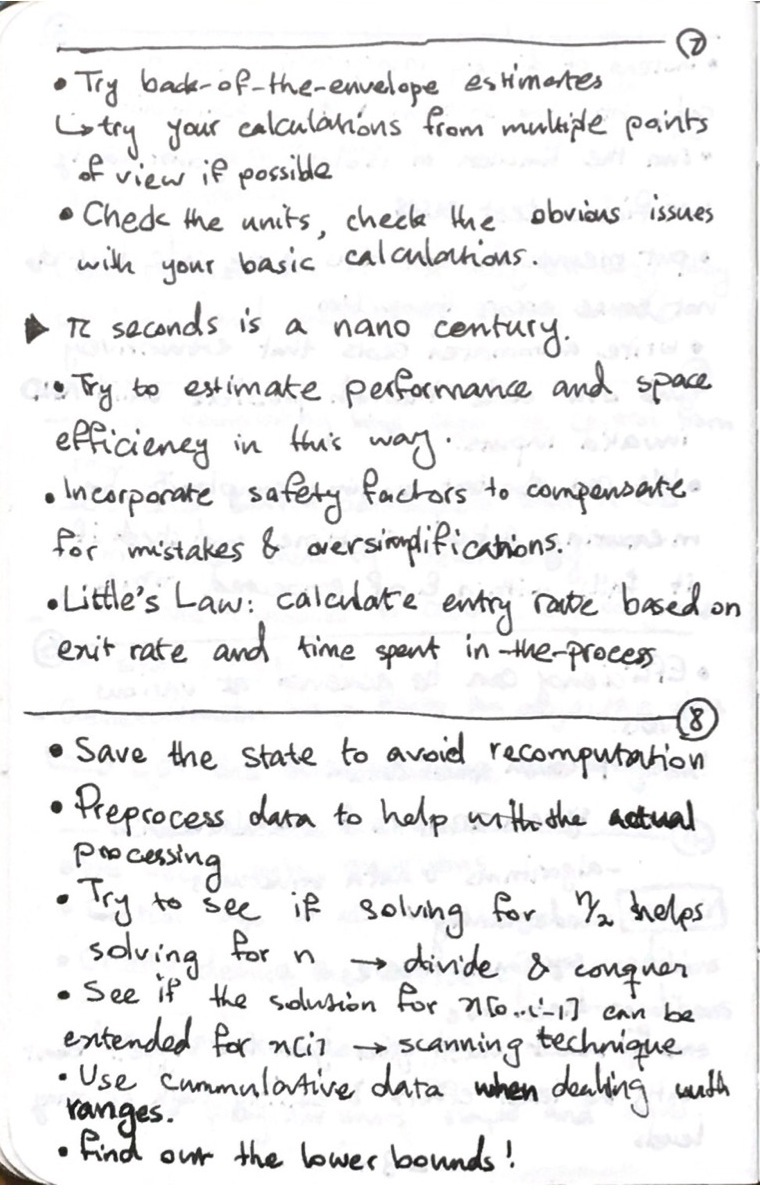 7
• Try back-of-the-envelope estimates
↳ try your calculations from multiple points
of view if possible
• Check the units, check the obvious issues
with your basic calculations.
▶ π seconds is a nano century.
• Try to estimate performance and space
efficiency in this way.
• Incorporate safety factors to compensate
for mistakes & oversimplifications.
• Little's Law: calculate entry rate based on
exit rate and time spent in-the-process
8
• Save the state to avoid recomputation
• Preprocess data to help with the actual
processing
• Try to see if solving for n/2 helps
solving for n → divide & conquer
• See if the solution for x[0..i-1] can be
extended for x[i] → scanning technique
• Use cummulative data when dealing with
ranges.
• Find out the lower bounds!